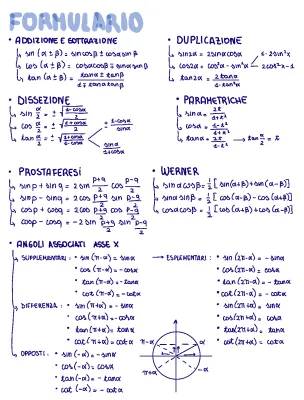 FORMULARIO
• ADDIZIONE E SOTTRAZIONE
sin (α ± β) = sinαcosβ ± cosαsinβ
cos (α ± β) = cosαcosβ ∓ sinαsinβ
tan (α ± β) = (tanα ± tanβ)/(1 ∓ tanα tanβ)
• DUPLICAZIONE
sin2α = 2sinαcosα
cos2α = cos²α - sin²α
1-2sin²α
2cos²α-1
tan2α = 2tanα/(1-tan²α)
• DISSEZIONE
sin α/2 = ± √((1-cosα)/2)
cos α/2 = ± √((1+cosα)/2)
tan α/2 = ± √((1-cosα)/(1+cosα))
(1-cosα)/sinα
sinα/(1+cosα)
• PARAMETRICHE
sinα = 2t/(1+t²)
cosα = (1-t²)/(1+t²)
tanα = 2t/(1-t²) → tan α/2 = t
• PROSTAFERESI
sinp + sinq = 2sin (p+q)/2 cos (p-q)/2
sinp - sinq = 2cos (p+q)/2 sin (p-q)/2
cosp + cosq = 2cos (p+q)/2 cos (p-q)/2
cosp - cosq = -2sin (p+q)/2 sin (p-q)/2
• WERNER
sinαcosβ = 1/2 [sin(α+β)+sin(α-β)]
sinαsinβ = 1/2 [cos(α-β)-cos(α+β)]
cosαcosβ = 1/2 [cos(α+β)+cos(α-β)]
• ANGOLI ASSOCIATI ASSE X
SUPPLEMENTARI: • sin (π-α) = sinα
• cos (π-α) = -cosα
• tan (π-α) = -tanα
• cot (π-α) = -cotα
DIFFERENZA: • sin (π+α) = -sinα
• cos (π+α) = -cosα
• tan (π+α) = tanα
• cot (π+α) = cotα
OPPOSTI: • sin (-α) = -sinα
• cos (-α) = cosα
• tan (-α) = -tanα
• cot (-α) = -cotα
→ ESPLEMENTARI: • sin (2π-α) = -sinα
• cos (2π-α) = cosα
• tan (2π-α) = -tanα
• cot (2π-α) = -cotα
• sin (2π+α) = sinα
• cos (2π+α) = cosα
• tan (2π+α) = tanα
• cot (2π+α) = cotα
π-α
α
π+α
-α